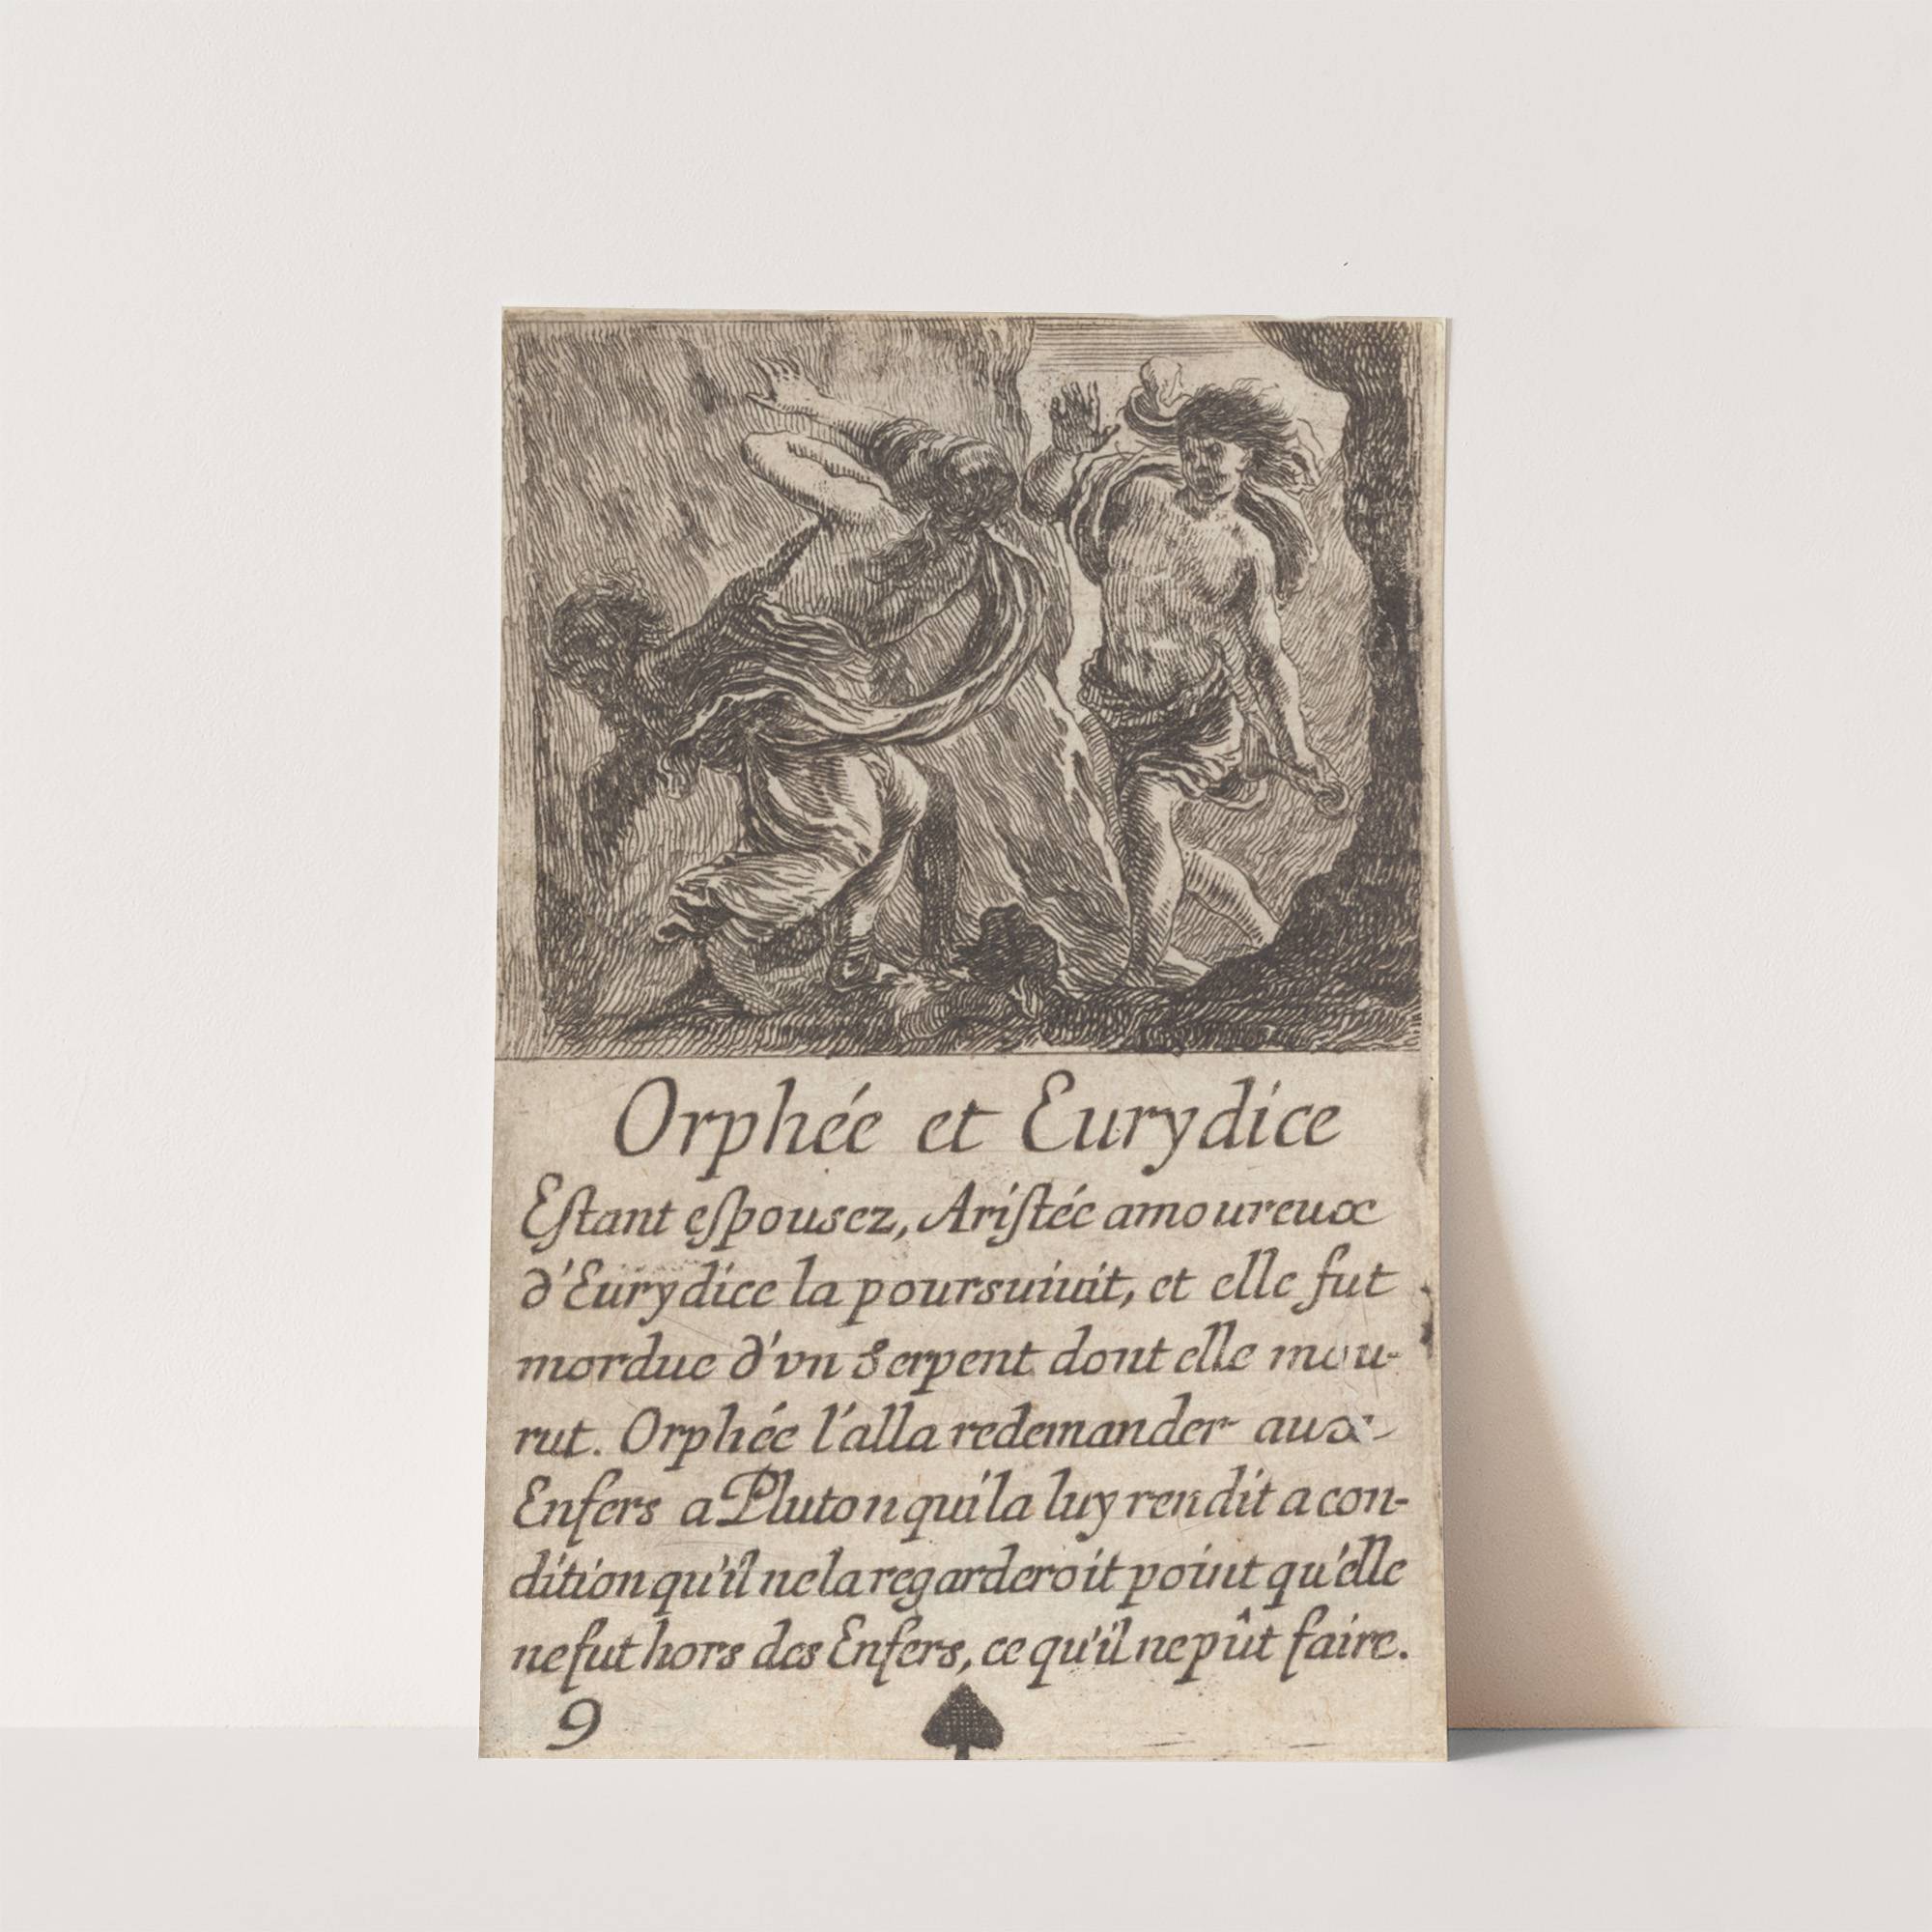 Orphée et Eurydice
Eſtant eſpousez, Ariſtée amoureux
d'Eurydice la poursuiuit, et elle fut
mordue d'vn Serpent dont elle mou-
rut. Orphée l'alla redemander aux
Enfers a Pluton qui la luy rendit a con-
dition qu'il ne la regarderoit point qu'elle
ne fut hors des Enfers, ce qu'il ne pût faire.
9